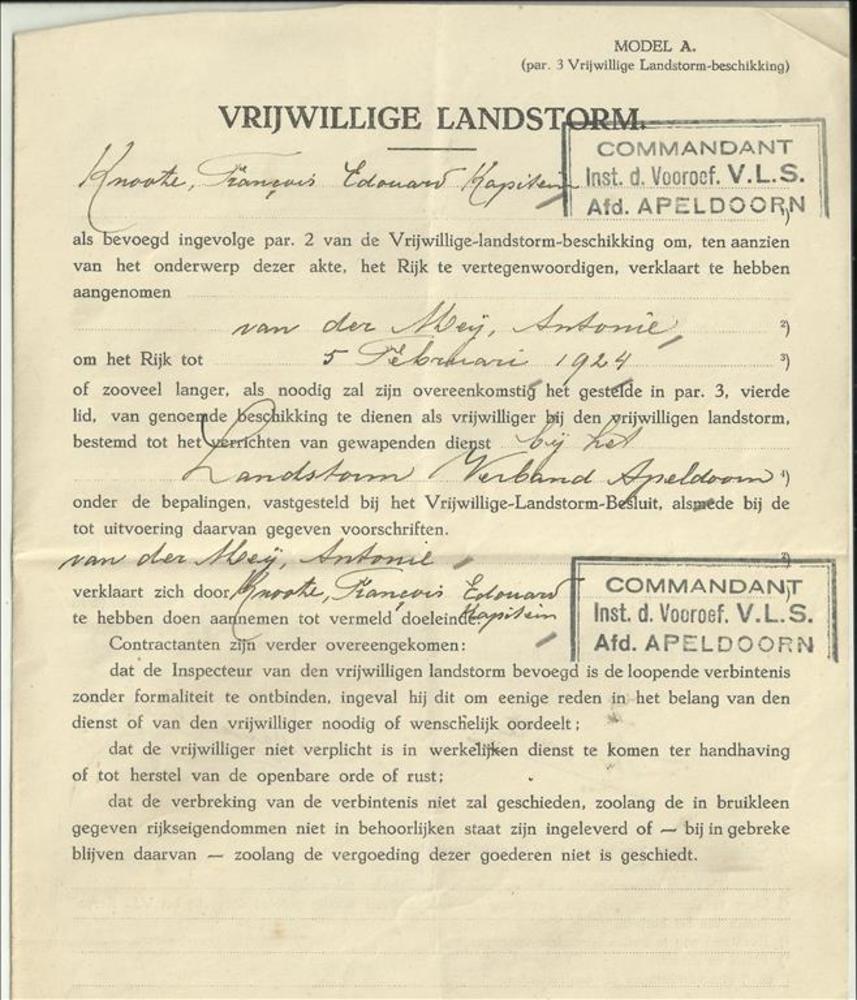 MODEL A.
(par. 3 Vrijwillige Landstorm-beschikking)
VRIJWILLIGE LANDSTORM.
Knoote, François Edouard Kapitein
COMMANDANT
Inst. d. Vooroef. V.L.S.
Afd. APELDOORN
als bevoegd ingevolge par. 2 van de Vrijwillige-landstorm-beschikking om, ten aanzien
van het onderwerp dezer akte, het Rijk te vertegenwoordigen, verklaart te hebben
aangenomen
van der Meij, Antonie ²)
om het Rijk tot 5 Februari 1924 ³)
of zooveel langer, als noodig zal zijn overeenkomstig het gestelde in par. 3, vierde
lid, van genoemde beschikking te dienen als vrijwilliger bij den vrijwilligen landstorm,
bestemd tot het verrichten van gewapenden dienst bij het
Landstorm Verband Apeldoorn ⁴)
onder de bepalingen, vastgesteld bij het Vrijwillige-Landstorm-Besluit, alsmede bij de
tot uitvoering daarvan gegeven voorschriften.
van der Meij, Antonie ²)
verklaart zich door Knoote, François Edouard
te hebben doen aannemen tot vermeld doeleinde. Kapitein
COMMANDANT
Inst. d. Vooroef. V.L.S.
Afd. APELDOORN
Contractanten zijn verder overeengekomen:
dat de Inspecteur van den vrijwilligen landstorm bevoegd is de loopende verbintenis
zonder formaliteit te ontbinden, ingeval hij dit om eenige reden in het belang van den
dienst of van den vrijwilliger noodig of wenschelijk oordeelt;
dat de vrijwilliger niet verplicht is in werkelijken dienst te komen ter handhaving
of tot herstel van de openbare orde of rust;
dat de verbreking van de verbintenis niet zal geschieden, zoolang de in bruikleen
gegeven rijkseigendommen niet in behoorlijken staat zijn ingeleverd of — bij in gebreke
blijven daarvan — zoolang de vergoeding dezer goederen niet is geschiedt.